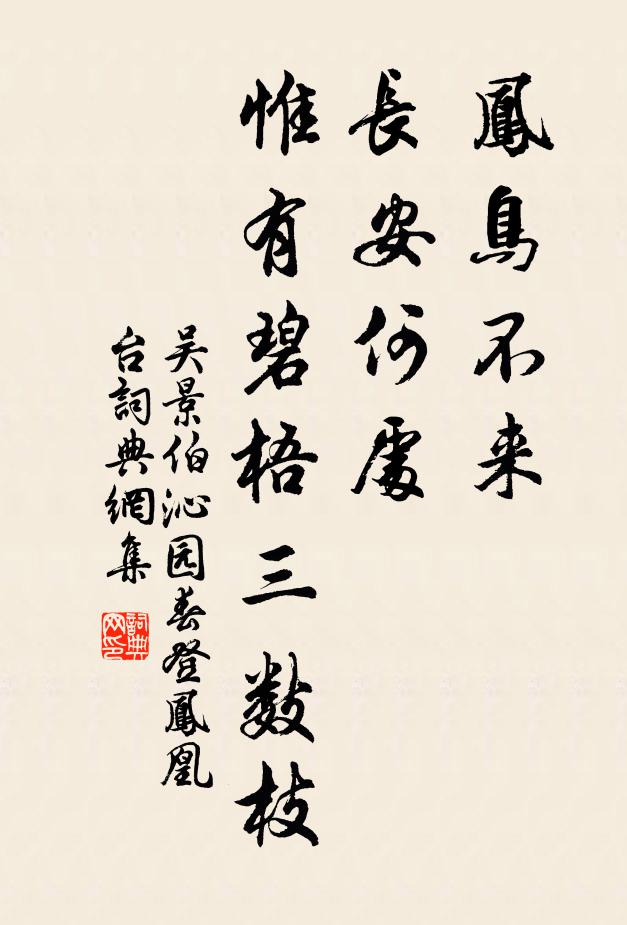 鳳鳥不来
長安何處
惟有碧梧三數枝
吴景伯沁园春登鳳凰
台詞典網集
詞典网印